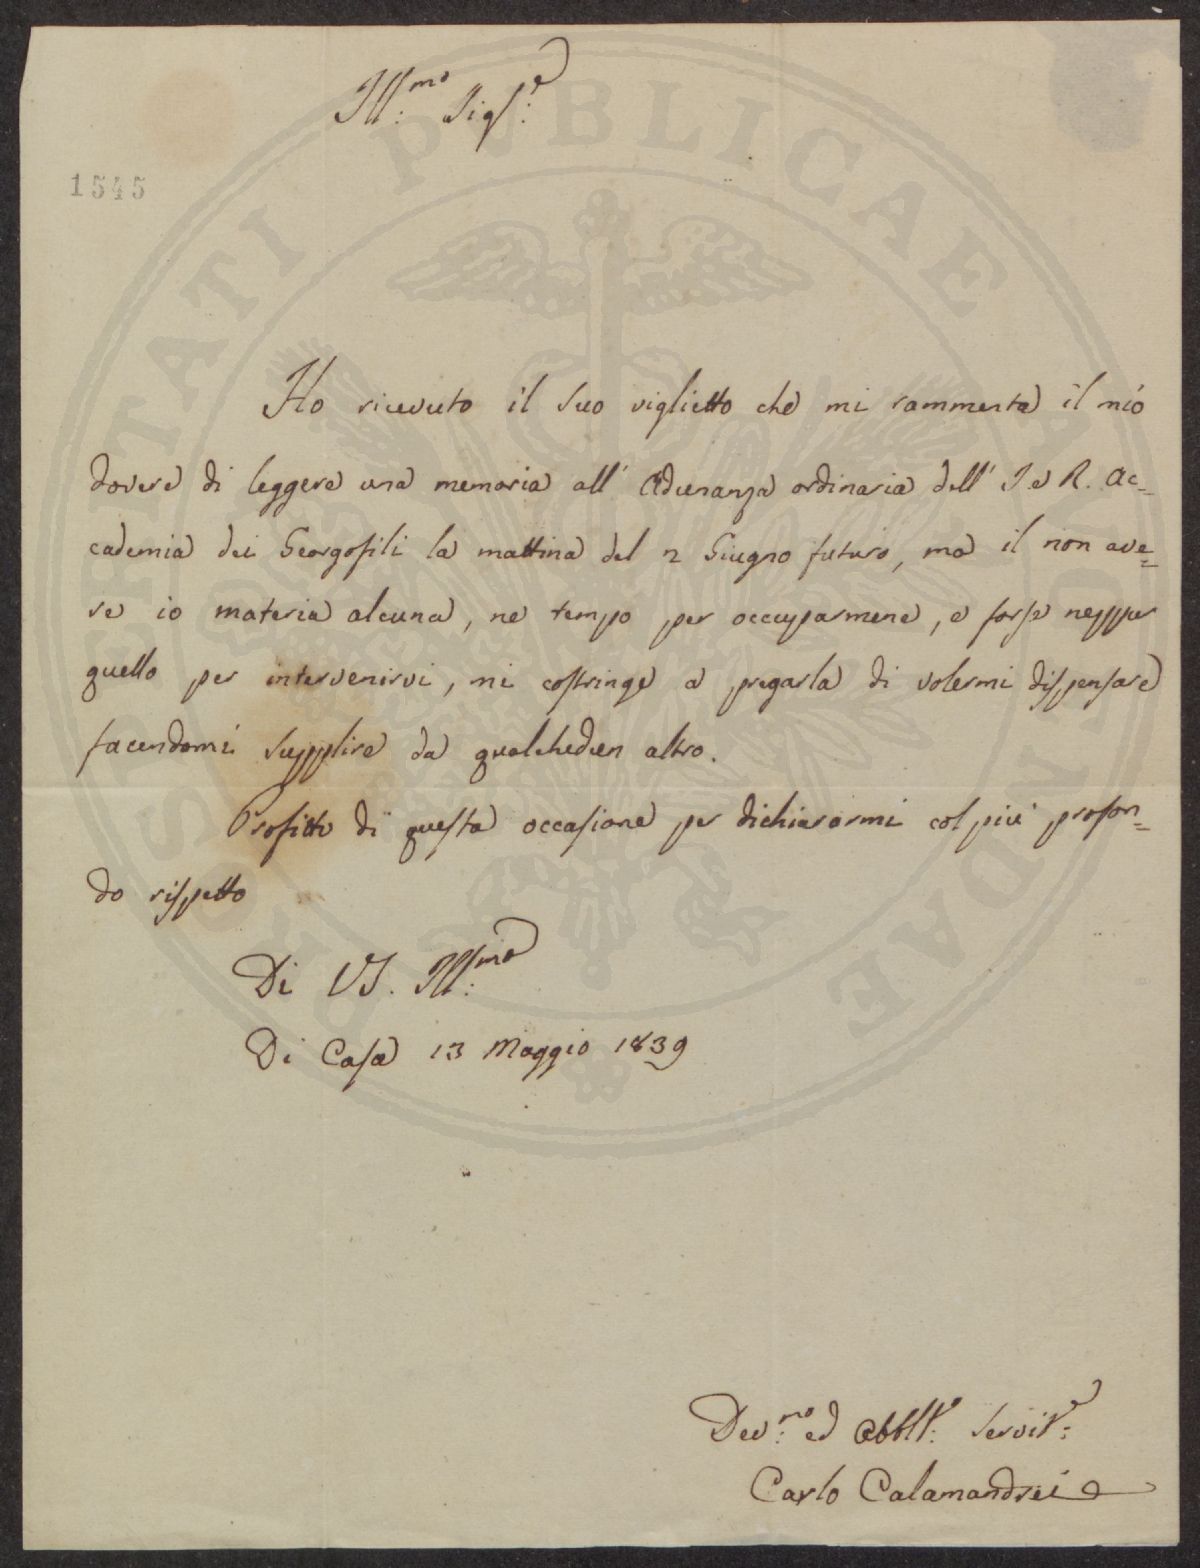 Ill:mo Sigr:e
1545
Ho ricevuto il suo viglietto che mi rammenta il mio
dovere di leggere una memoria all' Adunanza ordinaria dell' I. e R. Ac=
cademia dei Georgofili la mattina del 2 Giugno futuro, ma il non ave=
re io materia alcuna, ne tempo per occuparmene, e forse neppur
quello per intervenirvi, mi costringe a pregarla di volermi dispensare
facendomi supplire da qualchedun altro.
Profitto di questa occasione per dichiararmi col più profon=
do rispetto
Di VS. Ill:ma
Di Casa 13 Maggio 1839
Dev:mo ed Obbl:o Servit:e
Carlo Calamandrei
PROSPERITATI PUBLICAE AUGENDAE